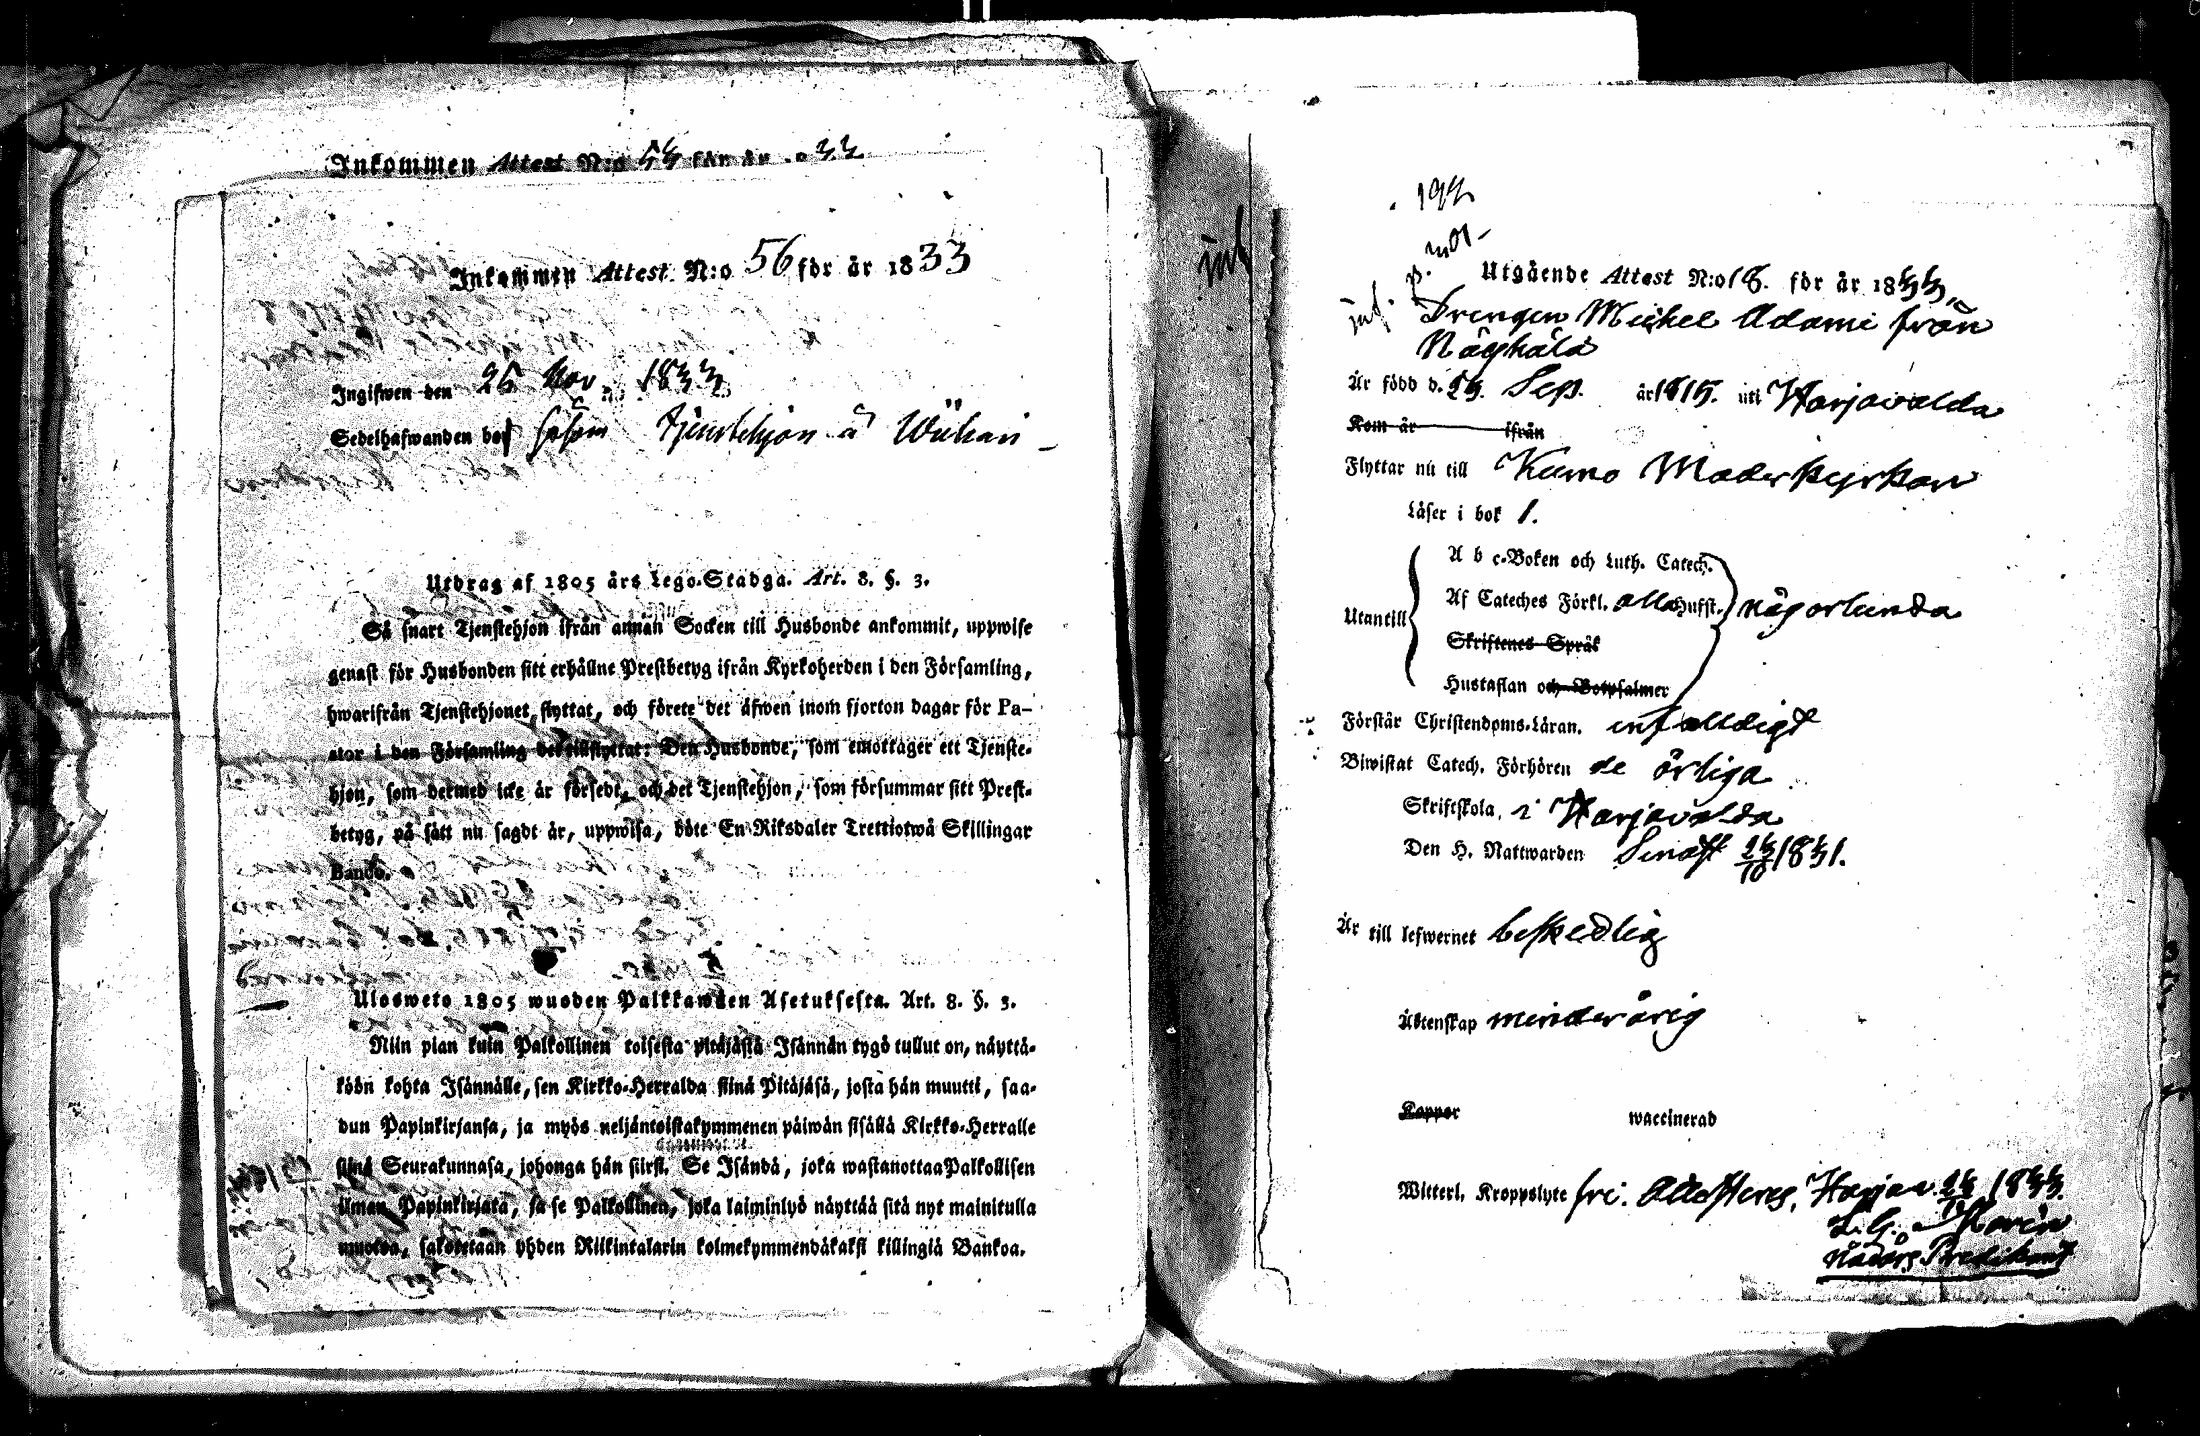 Inkommen Attest N:o 54 för år 1833
Inkommen Attest. N:o 56 för år 1833
Ingifwen den 25 Nov. 1833
Sedelhafwanden bor såsom Tjenstehjon å Wükari
Utdrag af 1805 års Lego-Stadga. Art. 8. §. 3.
Så snart Tjenstehjon ifrån annan Socken till Husbonde ankommit, uppwise
genast för Husbonden sitt erhållne Prestbetyg ifrån Kyrkoherden i den Församling,
hwarifrån Tjenstehjonet flyttat, och förete det äfwen inom fjorton dagar för Pa-
stor i den Församling det tillflyttat: Den Husbonde, som emottager ett Tjenste-
hjon, som dermed icke är försedt, och det Tjenstehjon, som försummar sitt Prest-
betyg, på sätt nu sagdt är, uppwisa, böte En Riksdaler Trettiotwå Skillingar
Banco.
Ulosweto 1805 wuoden Palkkawäen Asetuksesta. Art. 8. §. 3.
Niin pian kuin Palkollinen toisesta pitäjästä Isännän tygö tullut on, näyttä-
köön kohta Isännälle, sen Kirkko-Herralda siinä Pitäjäsä, josta hän muutti, saa-
dun Papinkirjansa, ja myös neljäntoistakymmenen päiwän sisällä Kirkko-Herralle
siinä Seurakunnasa, johonga hän siirsi. Se Isändä, joka wastanottaa Palkollisen
ilman Papinkirjata, ja se Palkollinen, joka laiminlyö näyttää sitä nyt mainitulla
muotoa, sakotetaan yhden Riikintalarin kolmekymmendäkaksi killingiä Bankoa.
Utgående Attest N:o 18. för år 1833
Drengen Michel Adami från
Näyhälä
Är född d. 23. Sep. år 1815. uti Harjavalda
Kom år ifrån
Flyttar nu till Kumo Moderkyrkan
Läser i bok 1.
A b c-Boken och Luth. Catech.
Utantill Af Cateches Förkl. alla Hufst. någorlunda
Skriftenes Språk
Hustaflan och Botpsalmer
Förstår Christendoms-Läran. enfalldigt
Biwistat Catech. Förhören de årliga
Skriftskola, i Harjavalda
Den H. Nattwarden Senast 1831.
Är till lefwernet beskedlig
Äktenskap minderårig
Koppor waccinerad
Witterl. Kroppslyte fri. Attesteras, Harjav. 1833.
L. G.
Nådårs Predikant